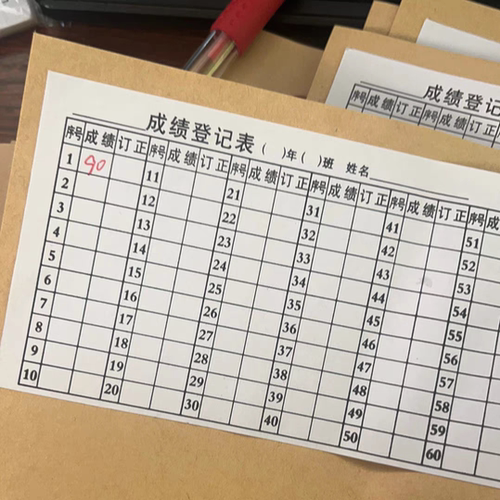 成绩登记表 ( )年( )班 姓名
序号 成绩 订正 序号 成绩 订正 序号 成绩 订正 序号 成绩 订正 序号 成绩 订正 序号 成
1 90 11 21 31 41 51
2 12 22 32 42 52
3 13 23 33 43 53
4 14 24 34 44 54
5 15 25 35 45 55
6 16 26 36 46 56
7 17 27 37 47 57
8 18 28 38 48 58
9 19 29 39 49 59
10 20 30 40 50 60
成绩登
序号 成绩 订正 序号